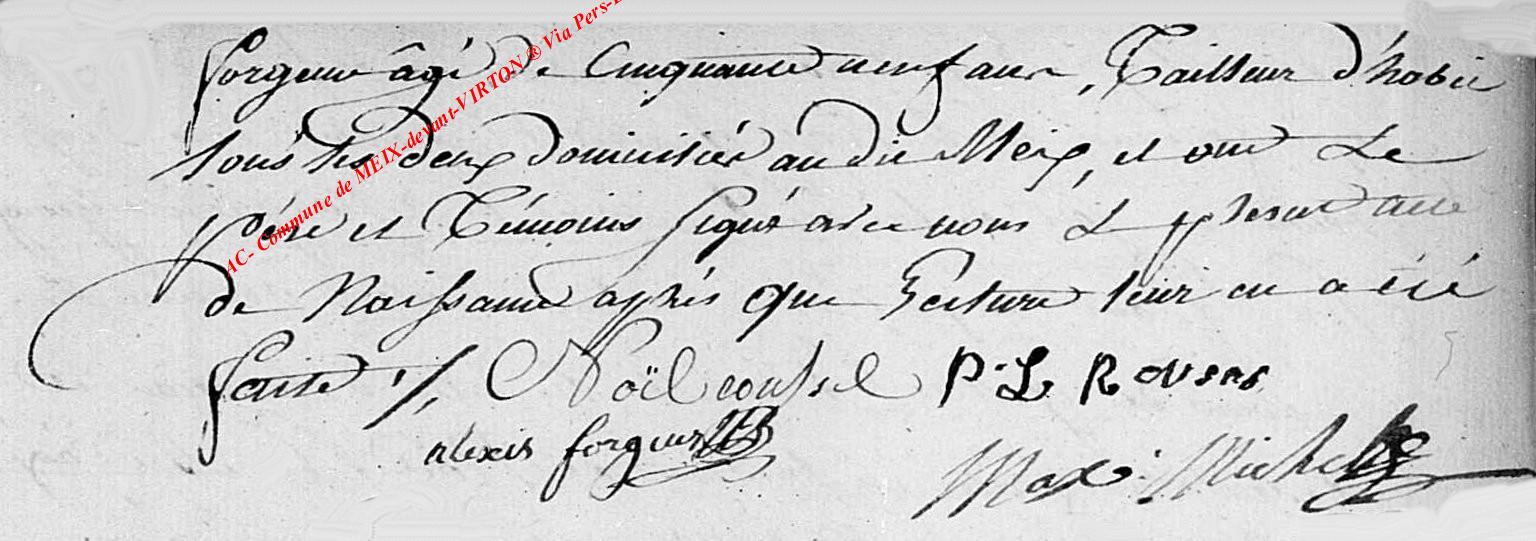 forgeur âgé de Cinquante neuf ans, Tailleur d'habit
tous les deux domiciliés au dit Meix, et ont Le
père et Témoins signé avec nous Le présent acte
de Naissance après que Lecture leur en a été
faite ./,
Noël
P. L. R
alexis forgeur
Max: Michel
AC- Commune de MEIX-devant-VIRTON ® Via Pers-